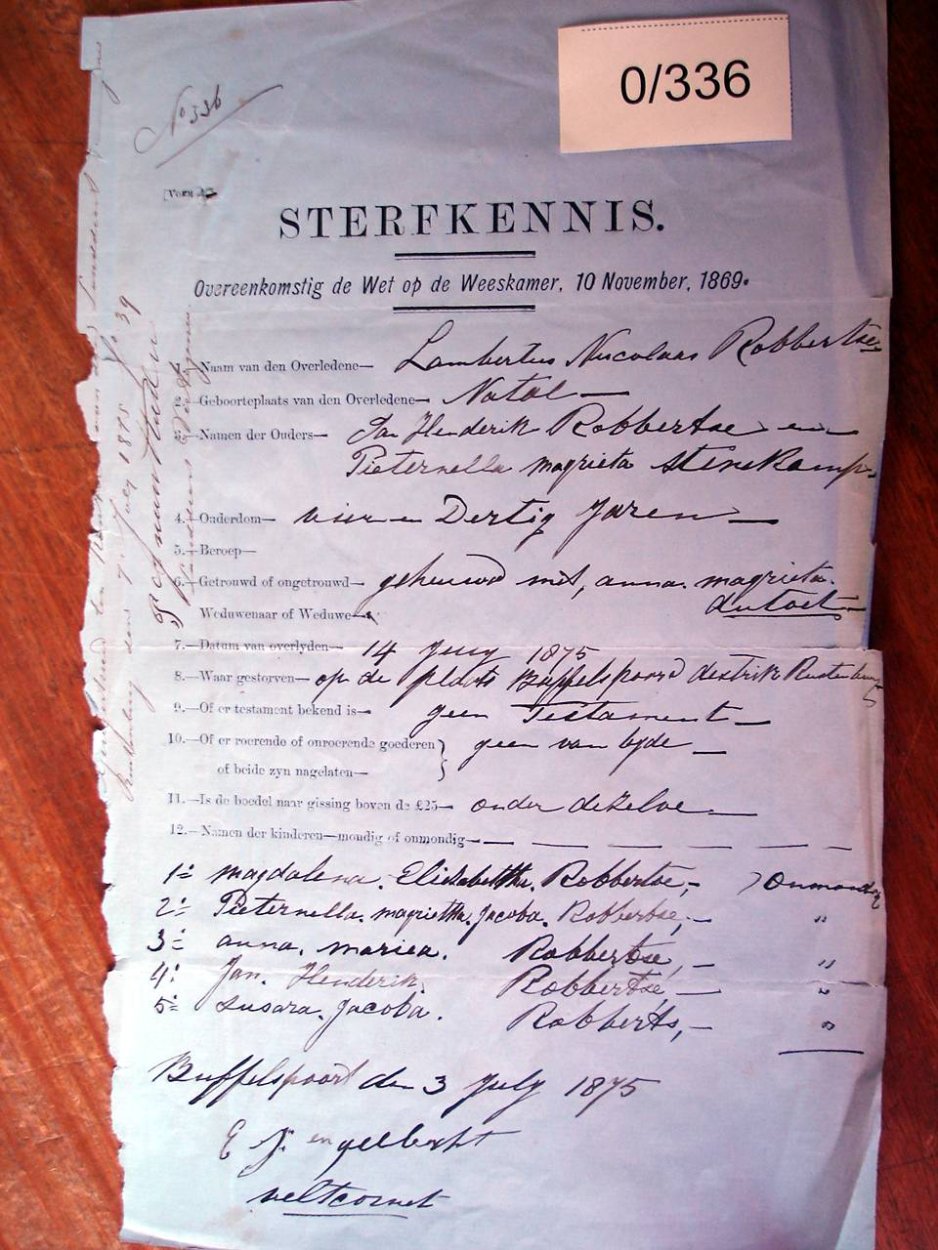 0/336
No 336
[Vorm
STERFKENNIS.
Overeenkomstig de Wet op de Weeskamer, 10 November, 1869.
1.—Naam van den Overledene— Lambertus Nucolaas Robbertse
2.—Geboorteplaats van den Overledene— Natal —
3.—Namen der Ouders— Jan Henderik Robbertse en —
Pieternella magrieta Stenekamp
4.—Ouderdom— vier en Dertig Jaren —
5.—Beroep—
6.—Getrouwd of ongetrouwd— gehuwd met, anna. magrieta.
dutoit —
Weduwenaar of Weduwe—
7.—Datum van overlyden— 14 Juny 1875
8.—Waar gestorven— op de plaats Buffelspoord destrik Rustenburg
9.—Of er testament bekend is— geen Testament —
10.—Of er roerende of onroerende goederen } geen van byde —
of beide zyn nagelaten—
11.—Is de boedel naar gissing boven de £25— onder dezelve —
12.—Namen der kinderen—mondig of onmondig— — — — — — —
1= magdalena. Elizabettha. Robbertse, — } Onmondig
2= Pieternella. magrietha. Jacoba. Robbertse, — "
3= anna. mariea. Robbertse, — "
4= Jan. Henderik. Robbertse, — "
5= Susara. Jacoba. Robberts, — "
Buffelspoort den 3 July 1875
E J. engelbrecht
veltcornet